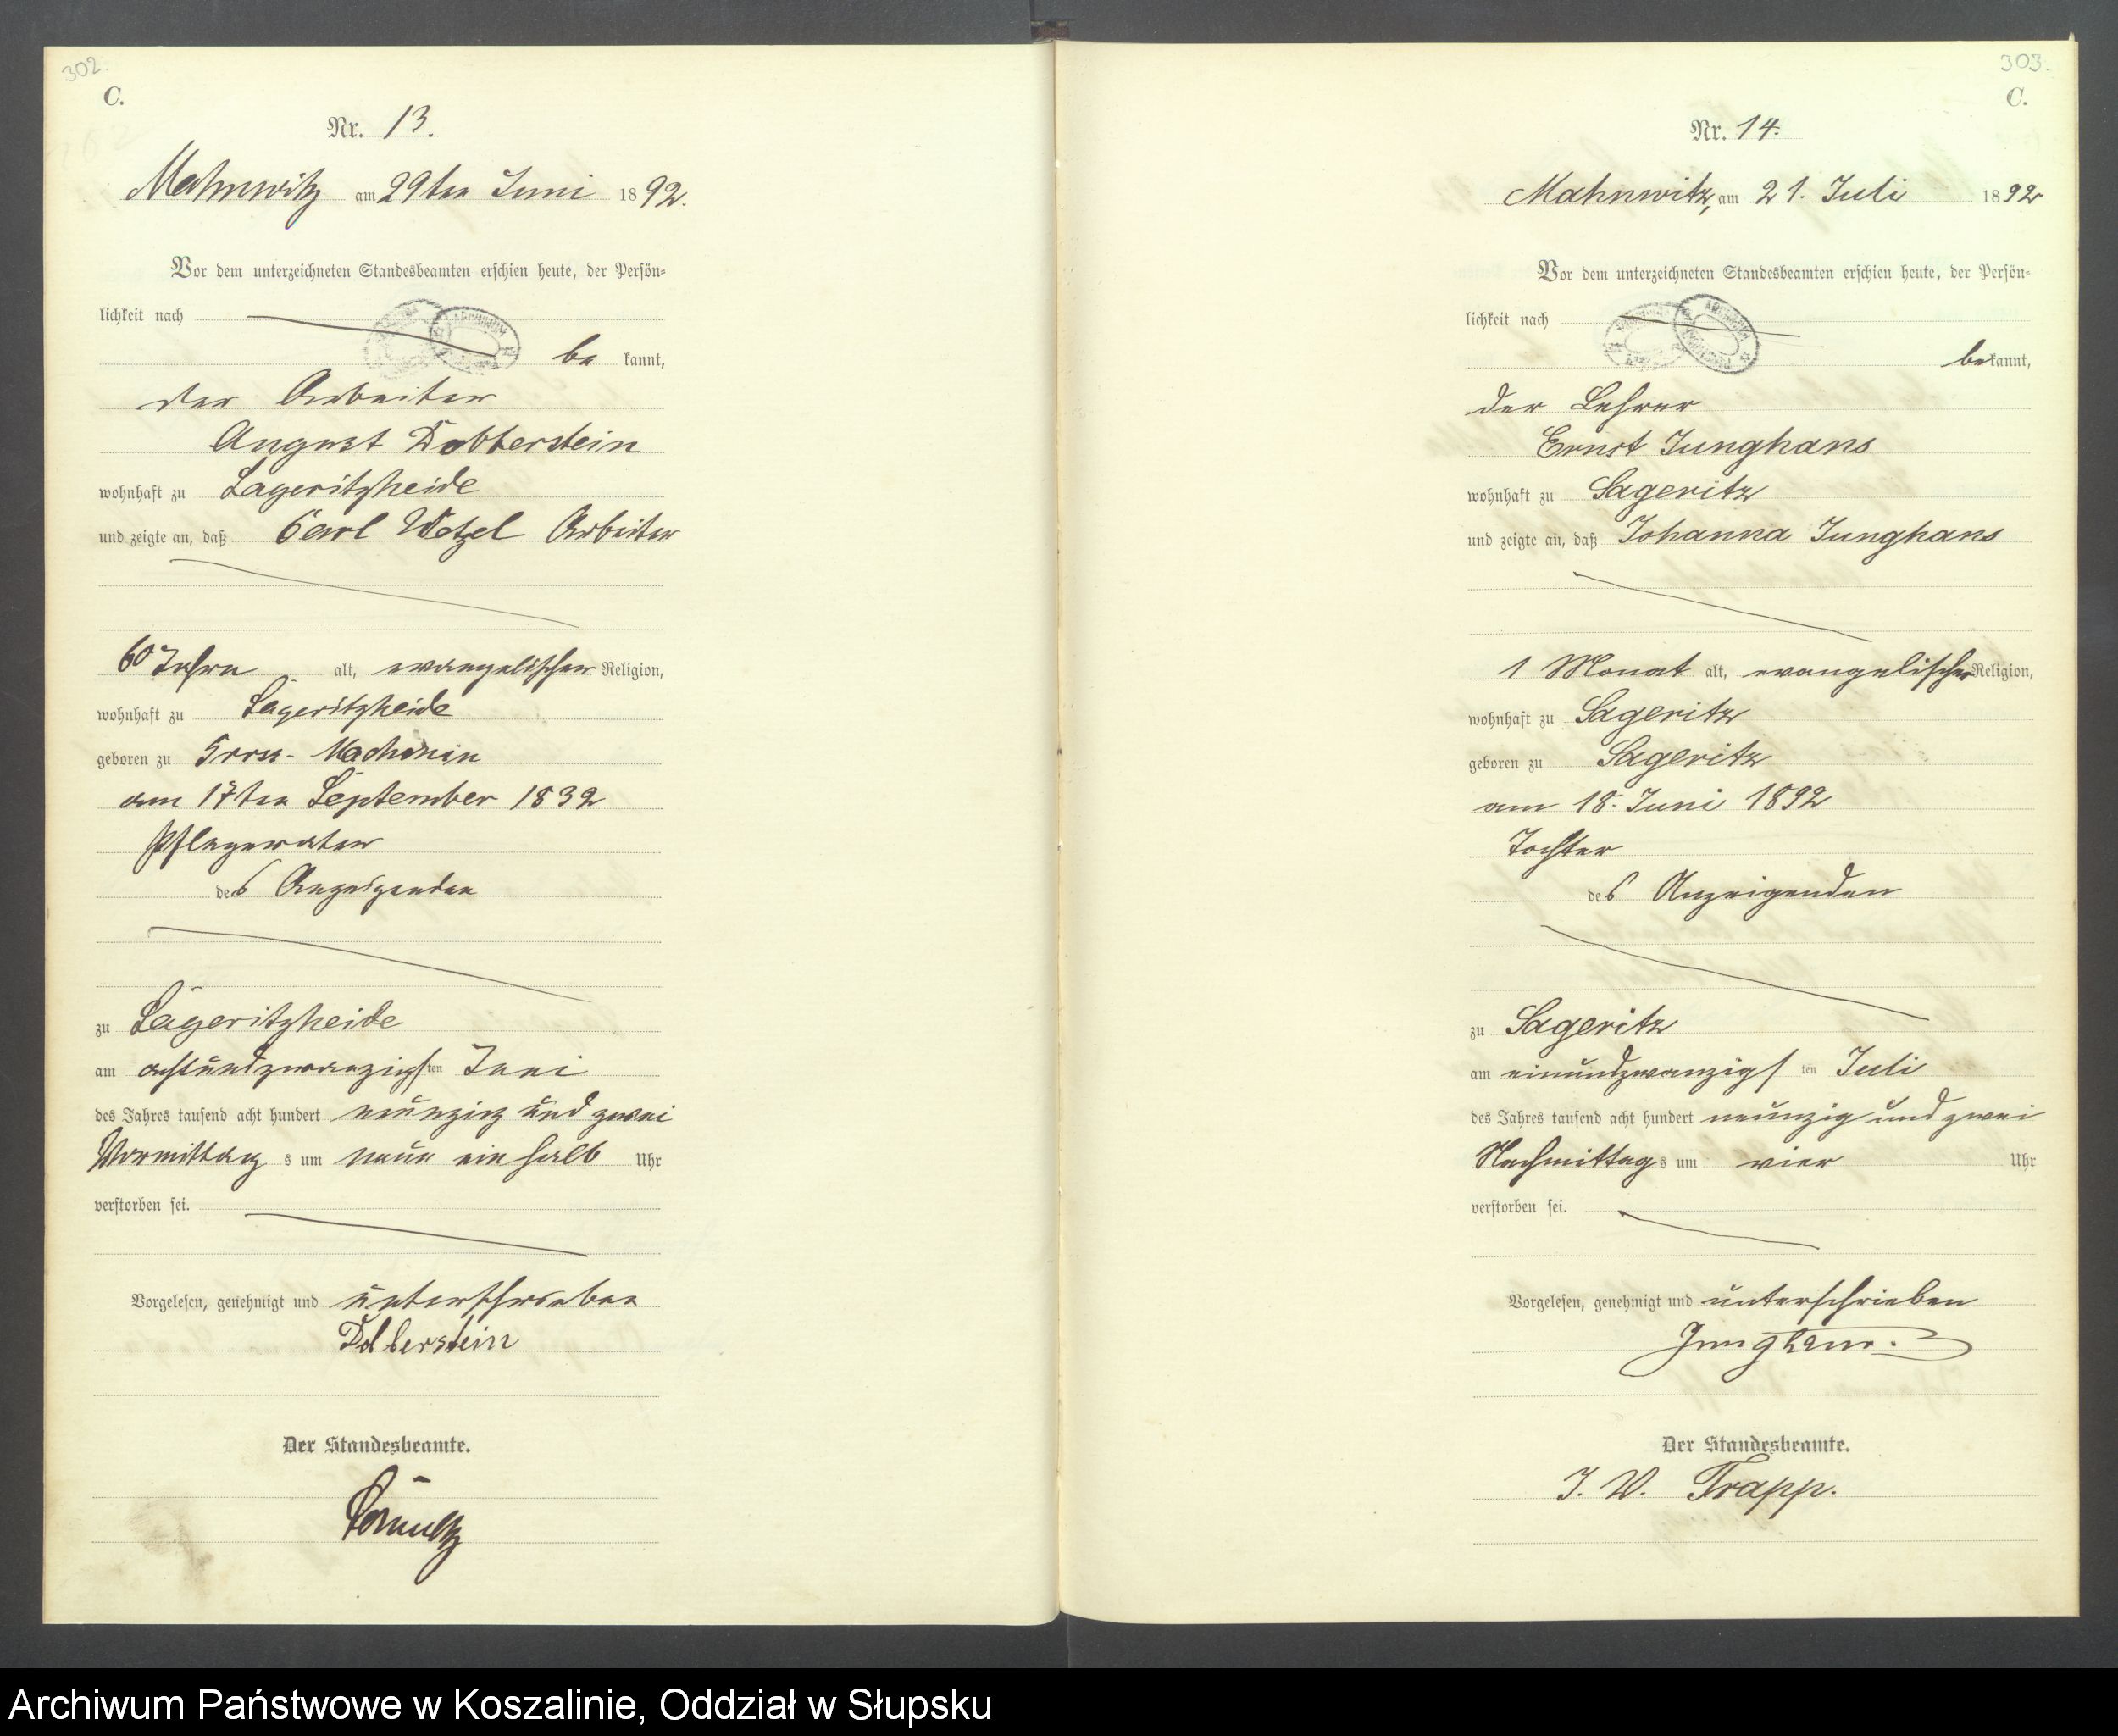 302.
C.
Nr. 13.
Mahnwitz am 29ten Juni 1892.
Vor dem unterzeichneten Standesbeamten erschien heute, der Persön=
lichkeit nach
be kannt,
der Arbeiter
August Dobberstein
wohnhaft zu Sageritzheide
und zeigte an, daß Carl Wetzel Arbeiter
60 Jahre alt, evangelischer Religion,
wohnhaft zu Sageritzheide
geboren zu Gross-Machmin
am 17ten September 1832
Pflegevater
des Anzeigenden
zu Sageritzheide
am achtundzwanzigsten Juni
des Jahres tausend acht hundert neunzig und zwei
Vormittags um neun ein halb Uhr
verstorben sei.
Vorgelesen, genehmigt und unterschrieben
Dobberstein
Der Standesbeamte.
303.
C.
Nr. 14.
Mahnwitz, am 21. Juli 1892
Vor dem unterzeichneten Standesbeamten erschien heute, der Persön=
lichkeit nach
bekannt,
der Lehrer
Ernst Junghans
wohnhaft zu Sageritz
und zeigte an, daß Johanna Junghans
1 Monat alt, evangelischer Religion,
wohnhaft zu Sageritz
geboren zu Sageritz
am 18. Juni 1892
Tochter
des Anzeigenden
zu Sageritz
am einundzwanzigsten Juli
des Jahres tausend acht hundert neunzig und zwei
Nachmittags um vier Uhr
verstorben sei.
Vorgelesen, genehmigt und unterschrieben
Junghans.
Der Standesbeamte.
J. V. Trapp.
Archiwum Państwowe w Koszalinie, Oddział w Słupsku